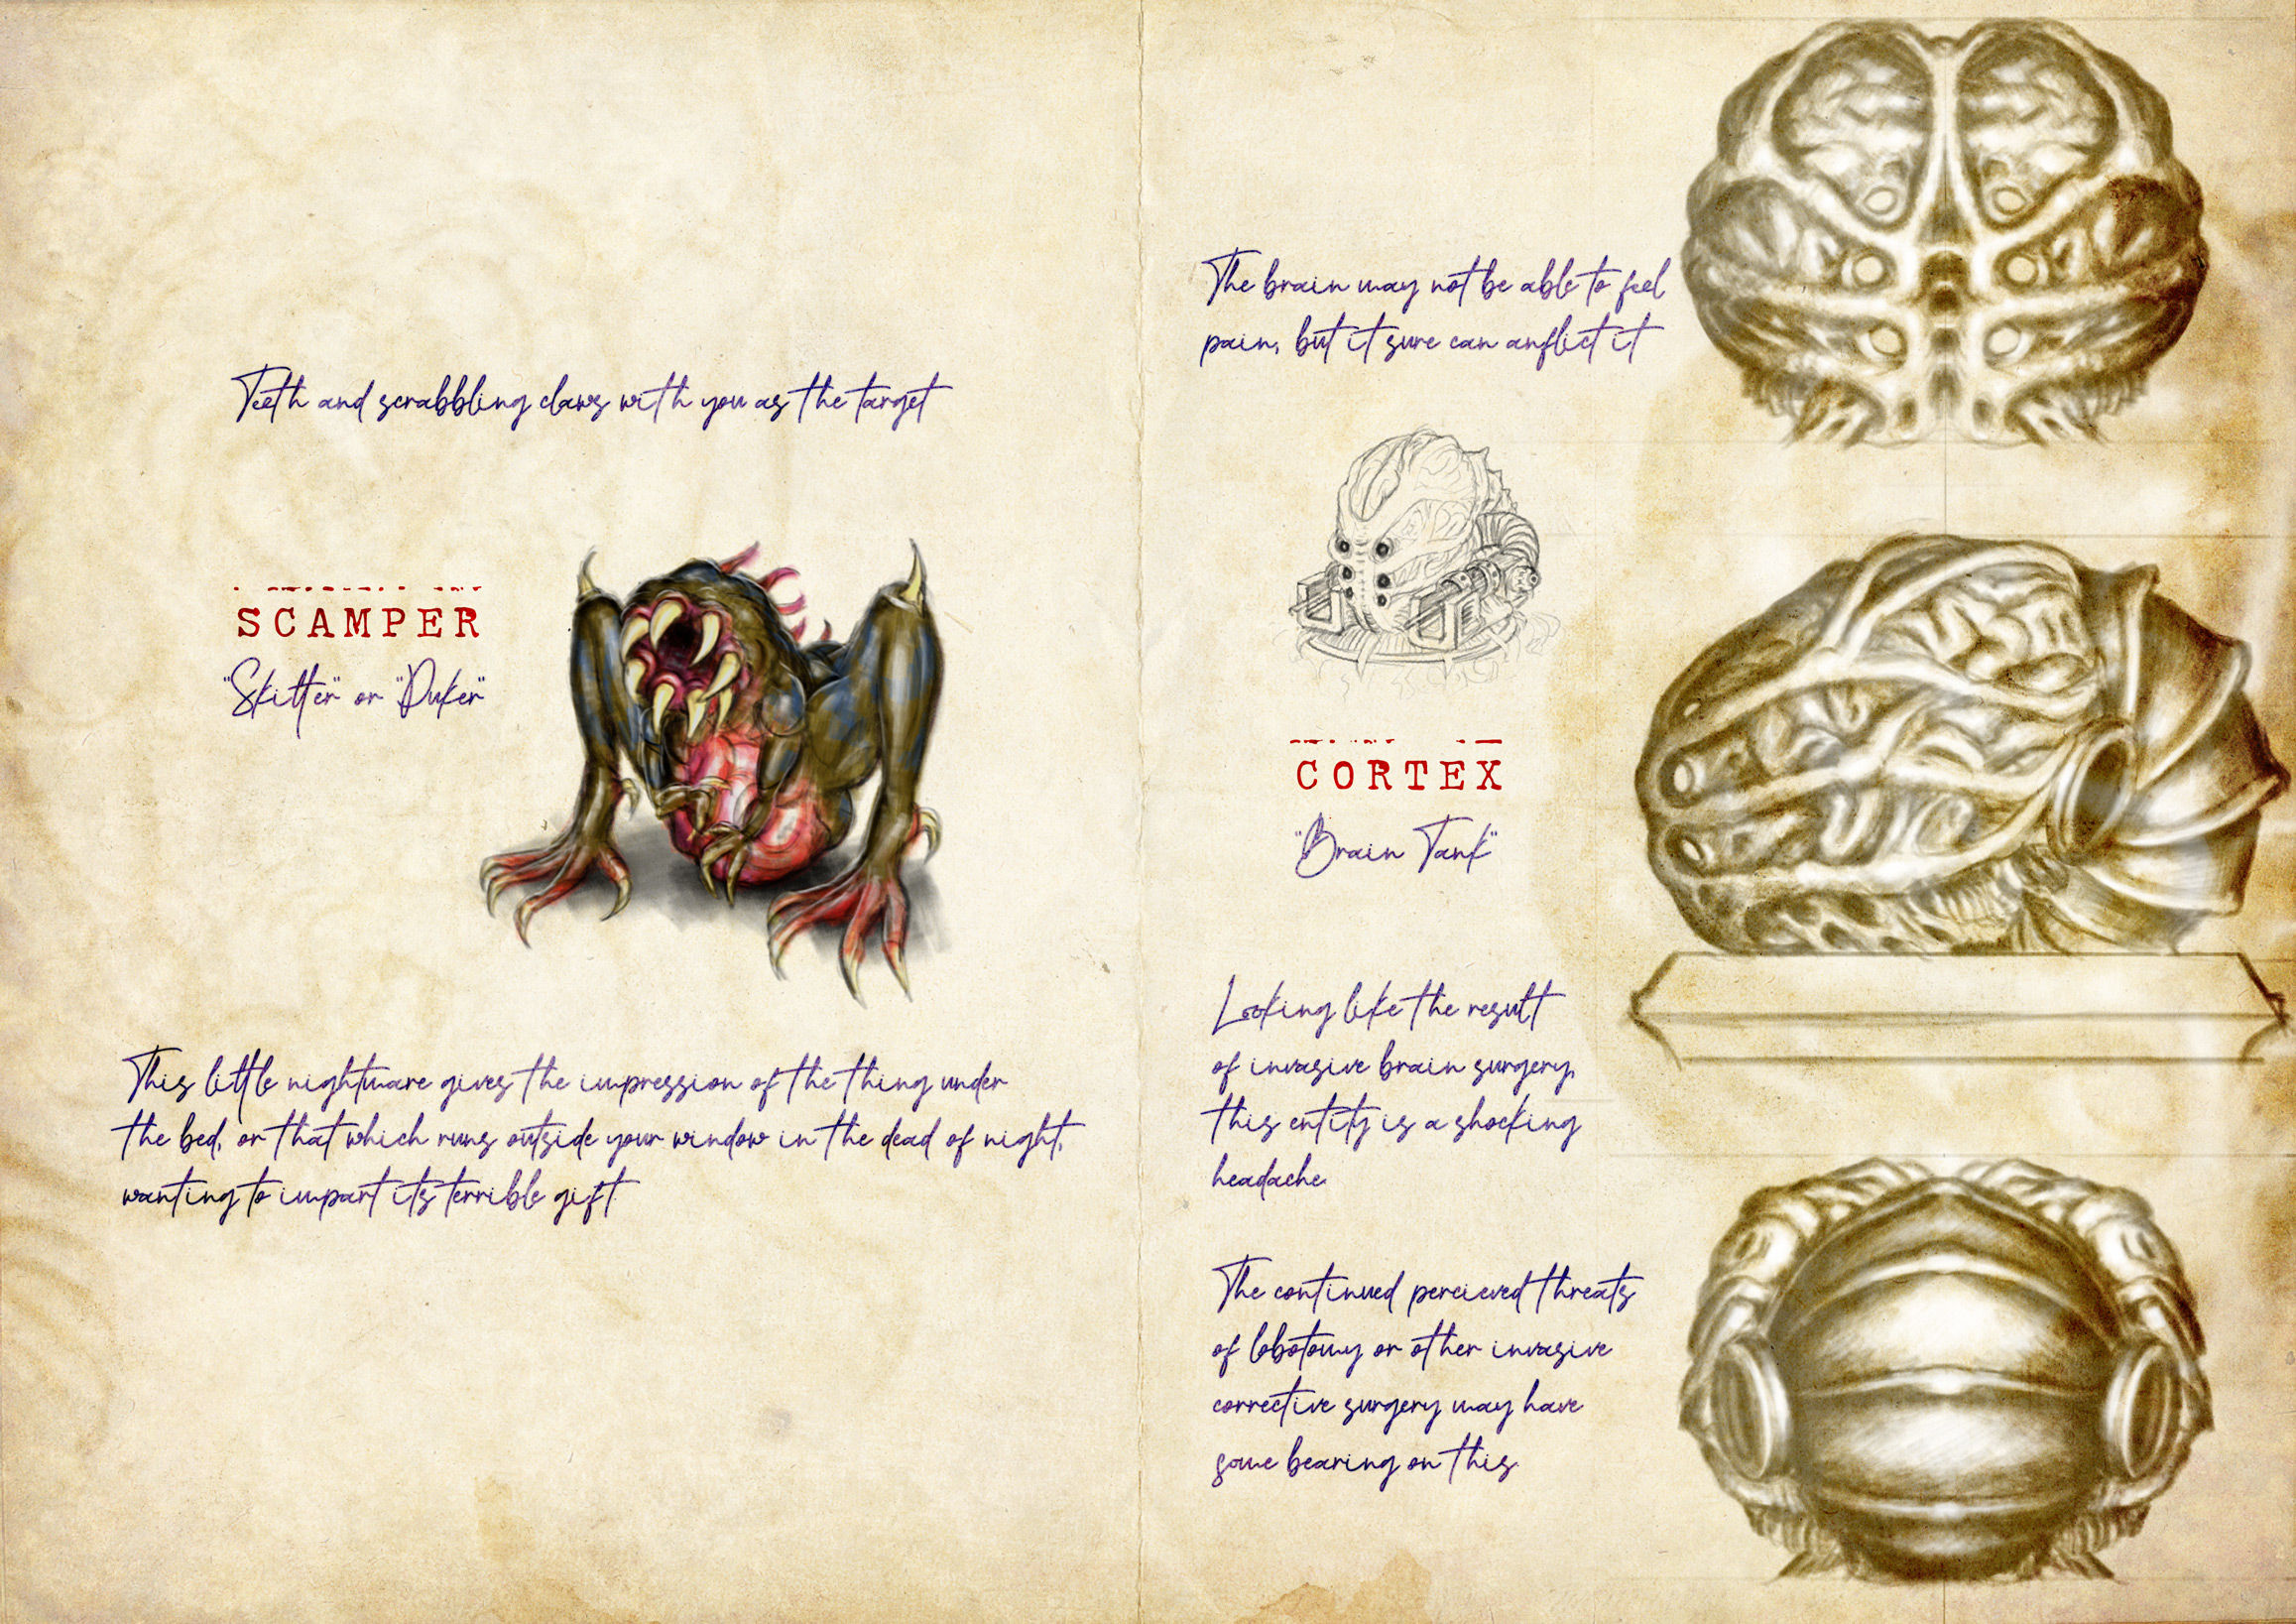 Teeth and scrabbling claws with you as the target
SCAMPER
"Skitter" or "Puker"
This little nightmare gives the impression of the thing under
the bed, or that which runs outside your window in the dead of night,
wanting to impart its terrible gift.
The brain may not be able to feel
pain, but it sure can anflict it
CORTEX
"Brain Tank"
Looking like the result
of invasive brain surgery,
this entity is a shocking
headache.
The continued percieved threats
of lobotomy or other invasive
corrective surgery may have
some bearing on this.